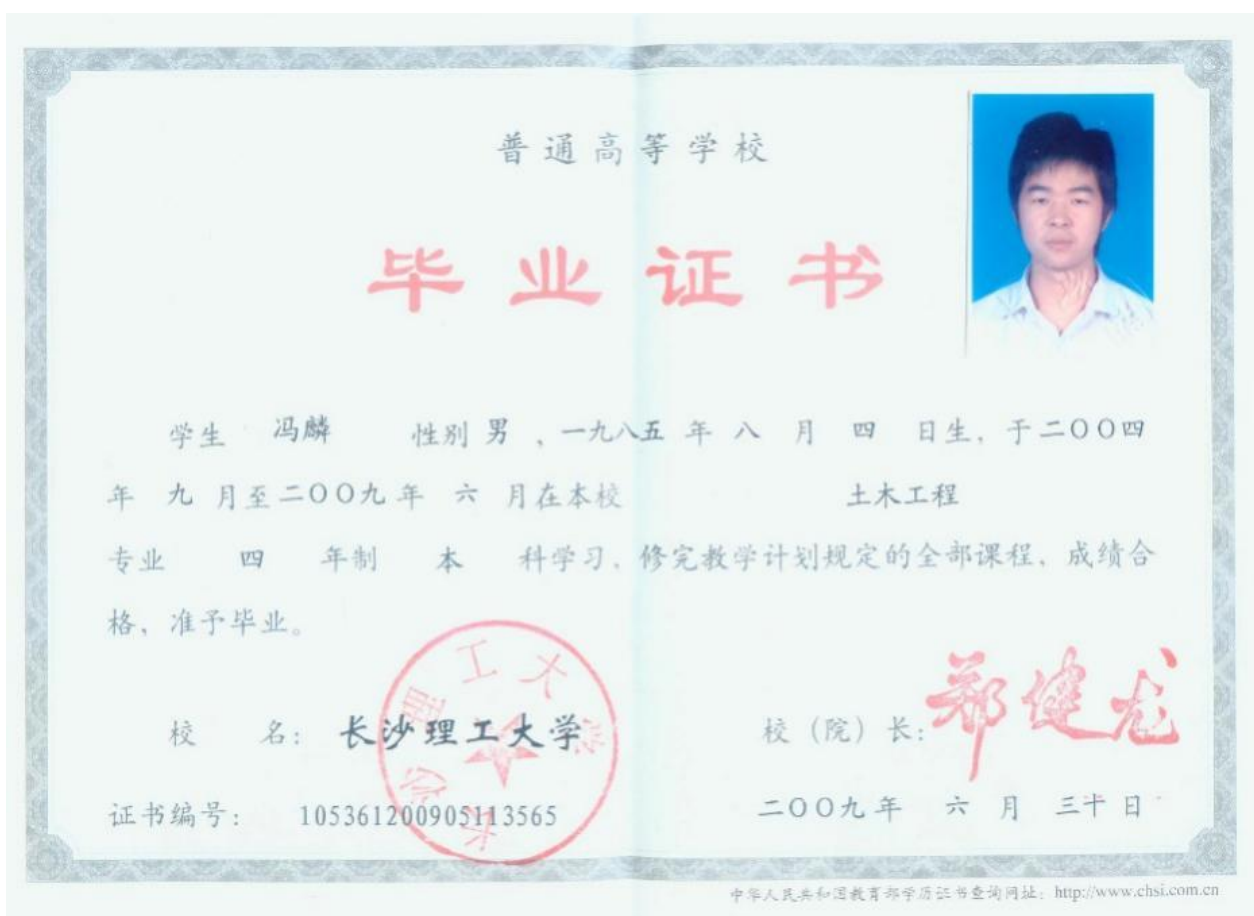 普通高等学校
毕业证书
学生 冯麟 性别 男 ，一九八五 年 八 月 四 日生，于二〇〇四
年 九 月至二〇〇九年 六 月在本校 土木工程
专业 四 年制 本 科学习，修完教学计划规定的全部课程，成绩合
格，准予毕业。
长沙理工大学
校 名：长沙理工大学 校（院）长：郑健龙
证书编号： 105361200905113565 二〇〇九年 六 月 三十 日
中华人民共和国教育部学历证书查询网址：http://www.chsi.com.cn